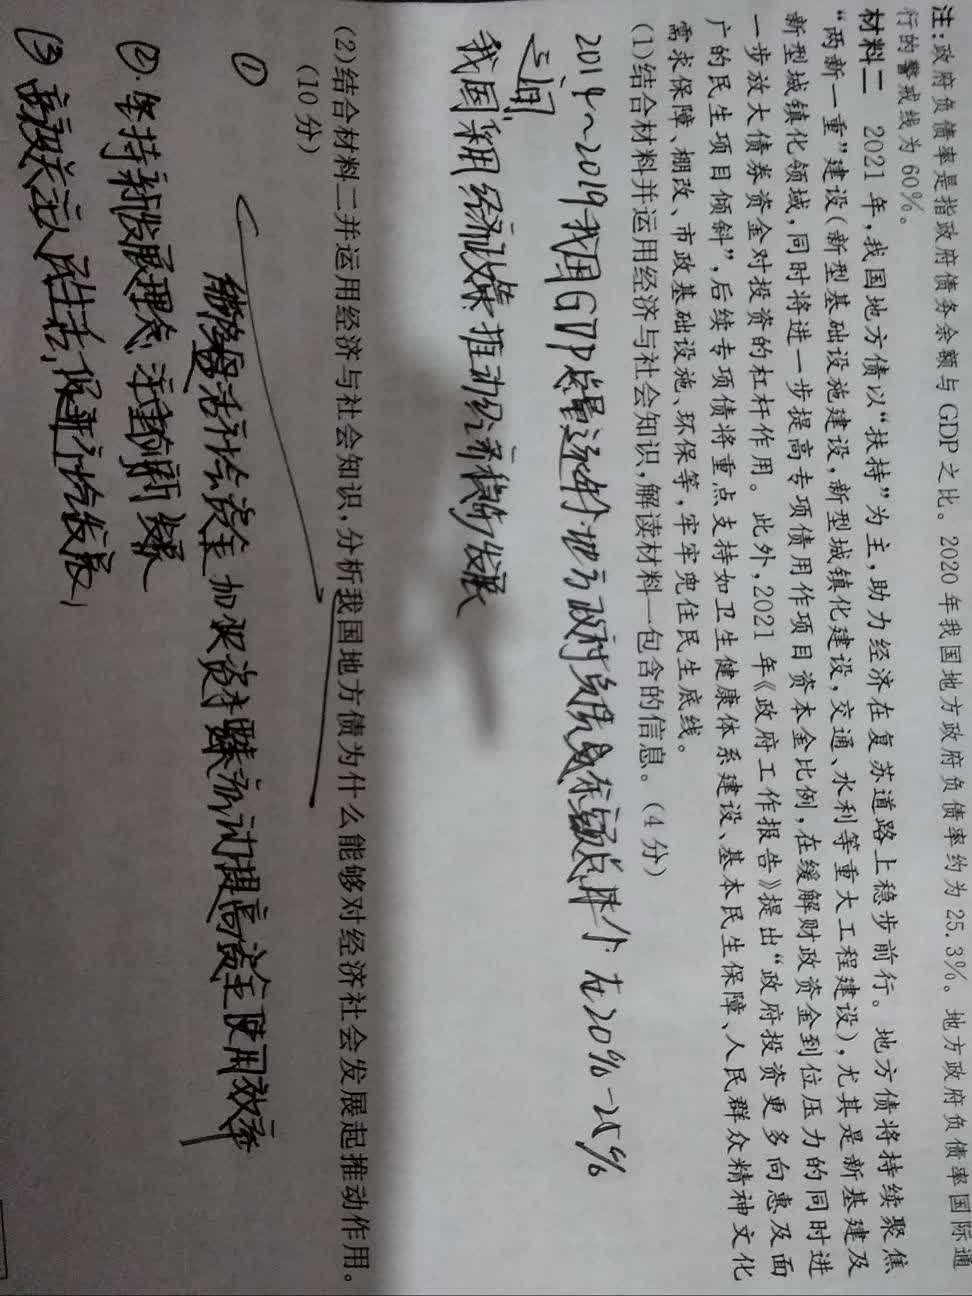 注:政府负债率是指政府债务余额与GDP之比。2020年我国地方政府负债率约为25.3%。地方政府负债率国际通
行的警戒线为60%。
材料二 2021年,我国地方债以“扶持”为主,助力经济在复苏道路上稳步前行。地方债将持续聚焦
“两新一重”建设(新型基础设施建设,新型城镇化建设,交通、水利等重大工程建设),尤其是新基建及
新型城镇化领域,同时将进一步提高专项债用作项目资本金比例,在缓解财政资金到位压力的同时进
一步放大债券资金对投资的杠杆作用。此外,2021年《政府工作报告》提出“政府投资更多向惠及面
广的民生项目倾斜”,后续专项债将重点支持如卫生健康体系建设、基本民生保障、人民群众精神文化
需求保障、棚改、市政基础设施、环保等,牢牢兜住民生底线。
(1)结合材料并运用经济与社会知识,解读材料一包含的信息。(4分)
2014~2019我国GDP总量逐年上升.地方政府负债率余额总体个 在20%-25%
之间
我国采用经济政策推动经济稳步发展
(2)结合材料二并运用经济与社会知识,分析我国地方债为什么能够对经济社会发展起推动作用。
(10分)
① 能够盘活社会资金 加快资本 流动提高资金使用效率
②.坚持新发展理念,注重创新发展
③ 关注人民生活,保 社会发展